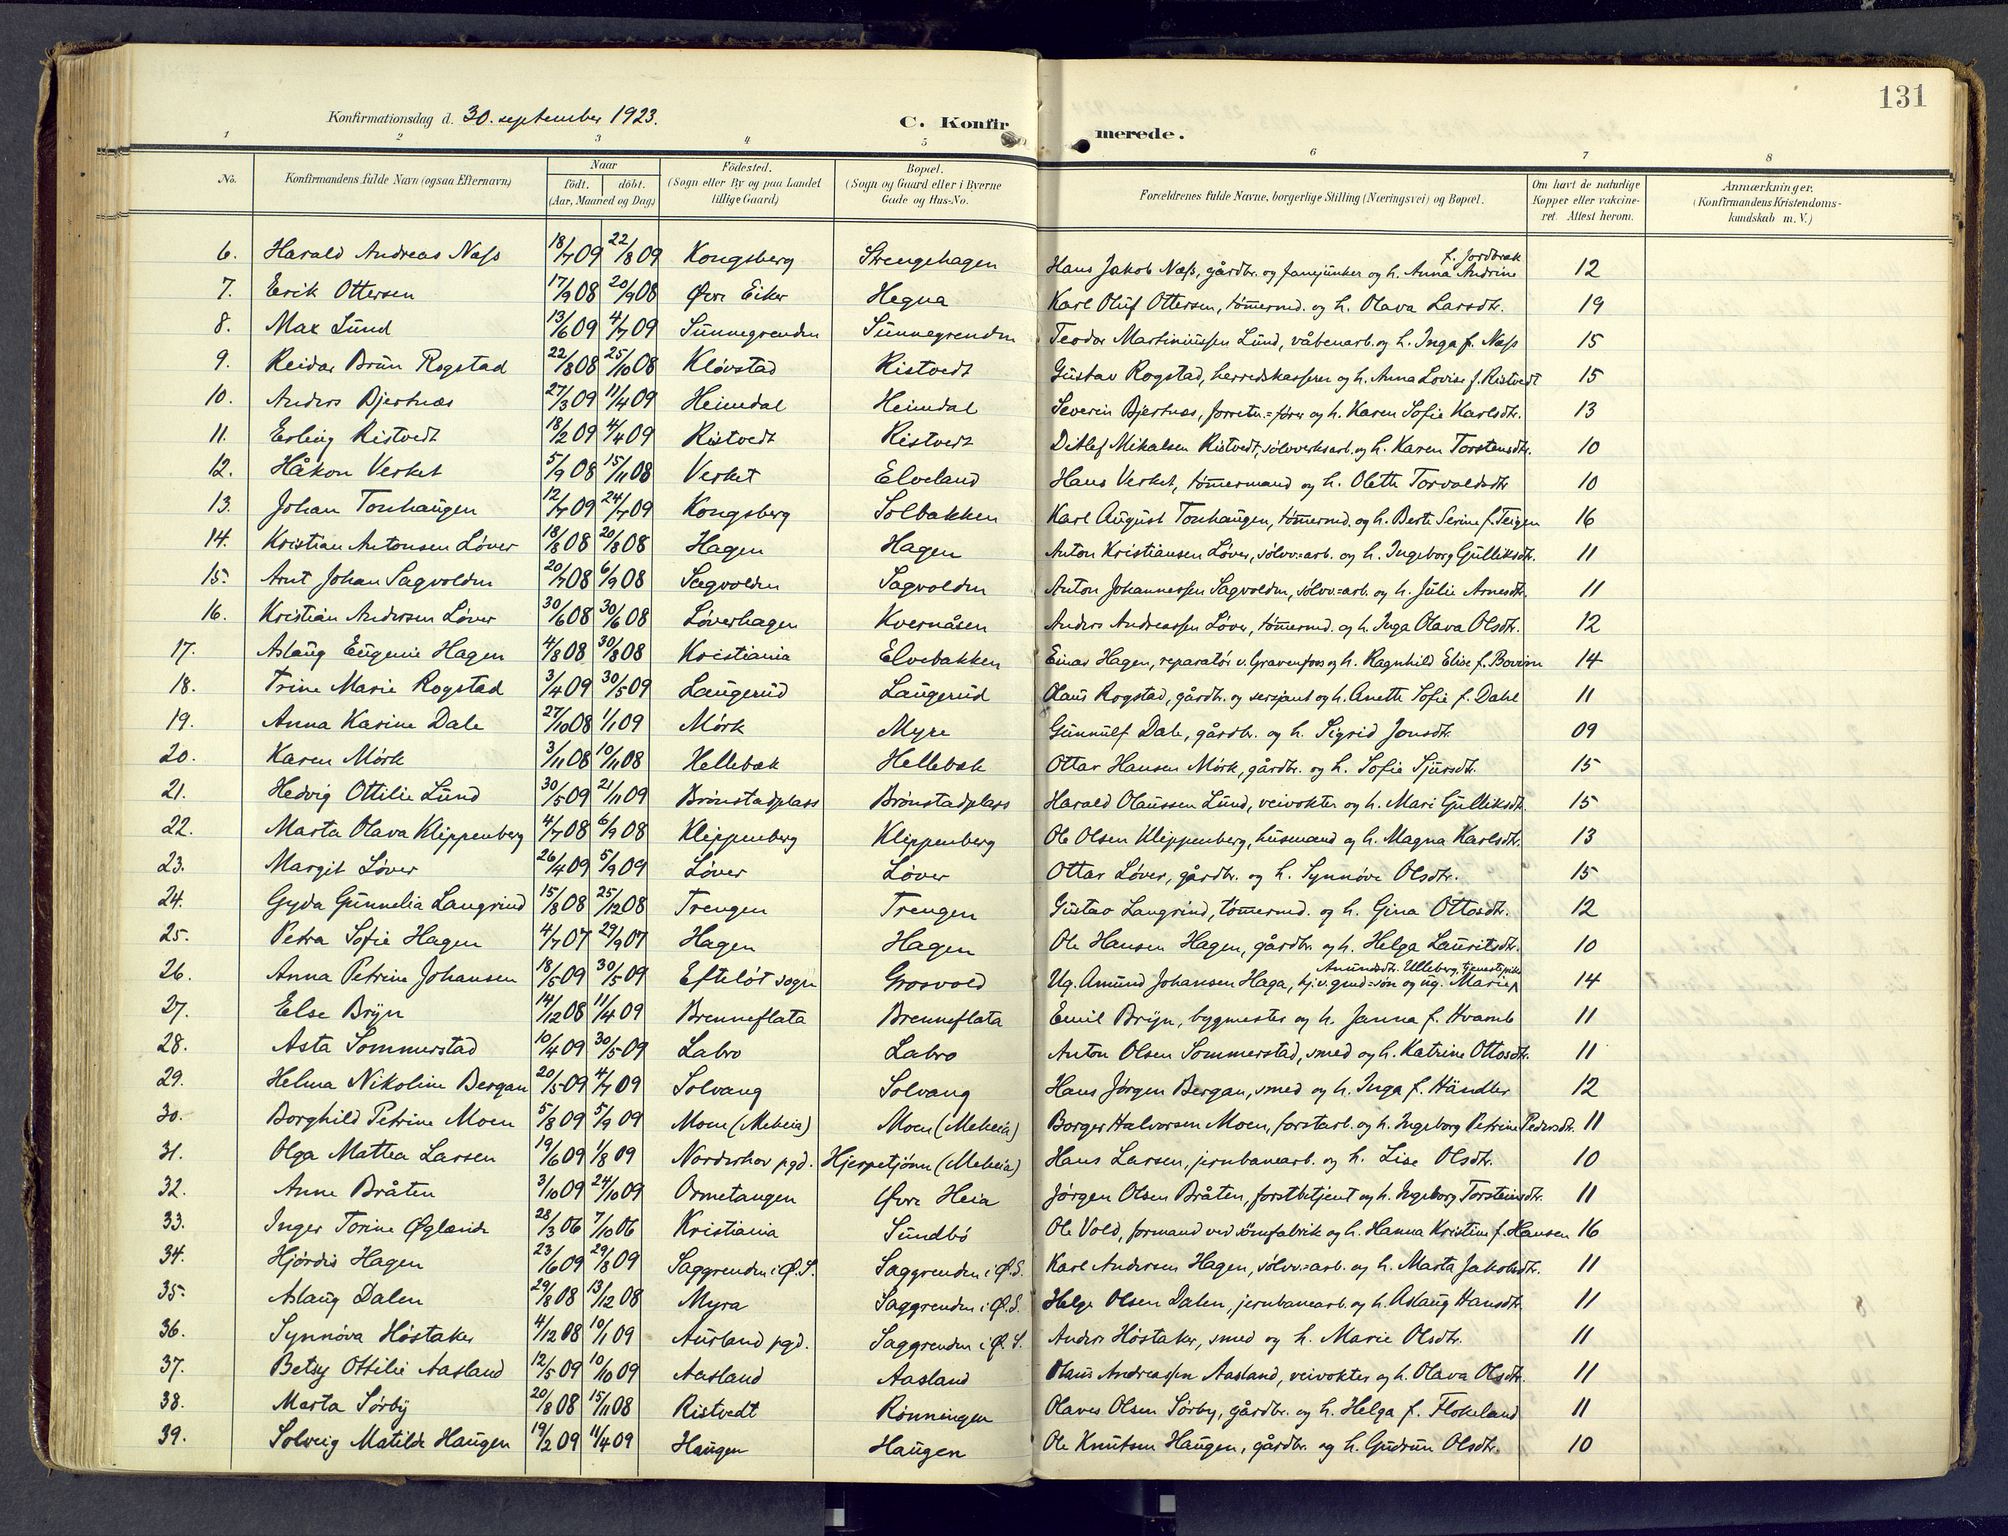 131
Konfirmationsdag d. 30. september 1923.
C. Konfirmerede.
1 2 3 4 5 6 7 8
No.
Konfirmandens fulde Navn (ogsaa Efternavn)
Naar
födt. döbt.
(Aar, Maaned og Dag)
Födested.
(Sogn eller By og paa Landet
tillige Gaard)
Bopæl.
(Sogn og Gaard eller i Byerne
Gade og Hus-No.
Forældrenes fulde Navne, borgerlige Stilling (Næringsvei) og Bopæl.
Om havt de naturlige
Kopper eller vakcine-
ret. Attest herom.
Anmærkninger.
(Konfirmandens Kristendoms-
kundskab m. V.)
6. Harald Andreas Næss 18/7 09 22/8 09 Kongsberg Strengehagen Hans Jakob Næss, gårdbr. og fanejunker og h. Anna Andrine f. Jordbræk 12
7. Erik Ottersen 17/9 08 20/9 08 Øvre Eiker Hegna Karl Oluf Ottersen, tømermd. og h. Olava Larsdtr. 19
8. Max Lund 13/6 09 4/7 09 Sunnegrenden Sunnegrenden Teodor Martiniussen Lund, våbenarb. og h. Inga f. Næss 15
9. Reidar Brun Rogstad 22/8 08 25/10 08 Kløvstad Ristvedt Gustav Rogstad, herredskasserer og h. Anna Lovise f. Ristvedt 15
10. Anders Bjertnæs 27/3 09 11/4 09 Heimdal Heimdal Severin Bjertnæs, forretn.=fører og h. Karen Sofie Karlsdtr. 13
11. Erling Ristvedt 18/2 09 4/4 09 Ristvedt Ristvedt Ditlef Mikalsen Ristvedt, sølvverksarb. og h. Karen Torstensdtr. 10
12. Håkon Verket 5/9 08 15/11 08 Verket Elveland Hans Verket, tømermand og h. Olette Torvaldsdtr 10
13. Johan Torshaugen 12/7 09 24/7 09 Kongsberg Solbakken Karl August Torshaugen, tømermd. og h. Berte Serine f. Teigen 16
14. Kristian Antonsen Løver 18/8 08 20/8 08 Hagen Hagen Anton Kristiansen Løver, sølvv=arb. og h. Ingeborg Gulliksdtr. 11
15. Arnt Johan Sagvolden 20/7 08 6/9 08 Sagvolden Sagvolden Anton Johannessen Sagvolden, sølvv=arb. og h. Julie Arnesdtr. 11
16. Kristian Andersen Løver 30/6 08 30/6 08 Løverhagen Kvernåsen Anders Andreassen Løver, tømermd. og h. Inga Olava Olsdtr. 12
17. Aslaug Eugenie Hagen 4/8 08 30/8 08 Kristiania Elvebakken Einar Hagen, reparatør v. Gravenfoss og h. Ragnhild Elise f. Bovim 14
18. Trine Marie Rogstad 3/4 09 30/5 09 Laugerud Laugerud Olaus Rogstad, gårdbr. og sersjant og h. Anette Sofie f. Dahl 11
19. Anna Karine Dale 27/10 08 1/1 09 Mørk Myre Gunnulf Dale, gårdbr. og h. Sigrid Jonsdtr. 09
20. Karen Mørk 3/11 08 10/11 08 Hellebæk Hellebæk Ottar Hansen Mørk, gårdbr. og h. Sofie Sjursdtr. 15
21. Hedvig Ottilie Lund 30/5 09 21/11 09 Brønstadplass Brønstadplass Harald Olaussen Lund, veivokter og h. Mari Gulliksdtr. 15
22. Marta Olava Klippenberg 4/7 08 6/9 08 Klippenberg Klippenberg Ole Olsen Klippenberg, husmand og h. Magna Karlsdtr. 13
23. Margit Løver 26/4 09 5/9 09 Løver Løver Ottar Løver, gårdbr. og h. Synnøve Olsdtr. 15
24. Gyda Gunnelia Langrind 15/8 08 25/12 08 Trengen Trengen Gustav Langrind, tømermd. og h. Gina Ottosdtr. 12
25. Petra Sofie Hagen 4/7 07 29/9 07 Hagen Hagen Ole Hansen Hagen, gårdbr. og h. Helga Lauritsdtr. 10
26. Anna Petrine Johansen 18/5 09 30/5 09 Efteløt sogn Grosvold Ug. Amund Johansen Haga, hj.v. grd=søn og ug. Marie Amundsdtr. Ulleberg, tjenestepike 14
27. Else Bryn 14/12 08 11/4 09 Brenneflata Brenneflata Emil Bryn, bygmester og h. Janna f. Hvamb 11
28. Asta Sommerstad 10/4 09 30/5 09 Labro Labro Anton Olsen Sommerstad, smed og h. Katrine Ottosdtr. 11
29. Helma Nikoline Bergan 20/5 09 4/7 09 Solvang Solvang Hans Jørgen Bergan, smed og h. Inga f. Händler 12
30. Borghild Petrine Moen 5/8 09 5/9 09 Moen (Meheia) Moen (Meheia) Borger Halvorsen Moen, forstarb. og h. Ingeborg Petrine Pedersdtr. 11
31. Olga Mattea Larsen 19/6 09 1/8 09 Norderhov pgd. Hjerpetjønn (Meheia) Hans Larsen, jernbanearb. og h. Lise Olsdtr. 10
32. Anne Bråten 3/10 09 24/10 09 Ormetangen Øvre Heia Jørgen Olsen Bråten, forstbetjent og h. Ingeborg Torsteinsdtr. 11
33. Inger Torine Øglænde 28/3 06 7/10 06 Kristiania Sundbø Ole Vold, formand ved sømfabrik og h. Hanna Kristine f. Hansen 16
34. Hjørdis Hagen 23/6 09 29/8 09 Saggrenden i Ø.S. Saggrenden i Ø.S. Karl Andersen Hagen, sølvv=arb. og h. Marta Jakobsdtr. 11
35. Aslaug Dalen 29/8 08 13/12 08 Myra Saggrenden i Ø.S. Helge Olsen Dalen, jernbanearb. og h. Aslaug Hansdtr. 11
36. Synnøva Høstaker 4/12 08 10/1 09 Aurland pgd. Saggrenden i Ø.S. Anders Høstaker, smed og h. Marie Olsdtr. 11
37. Betsy Ottilie Aasland 12/5 09 10/10 09 Aasland Aasland Olaus Andreassen Aasland, veivokter og h. Olava Olsdtr. 11
38. Marta Sørby 20/8 08 15/11 08 Ristvedt Rønningen Olaves Olsen Sørby, gårdbr. og h. Helga f. Flokeland 11
39. Solveig Matilde Haugen 19/2 09 11/4 09 Haugen Haugen Ole Knutsen Haugen, gårdbr. og h. Gudrun Olsdtr. 10